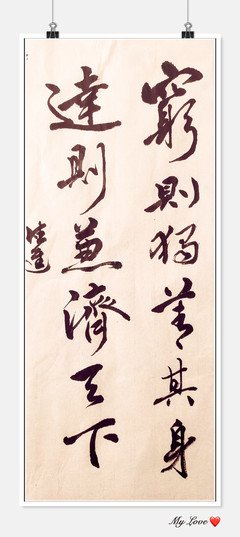 窮則獨善其身
達則兼濟天下
My Love